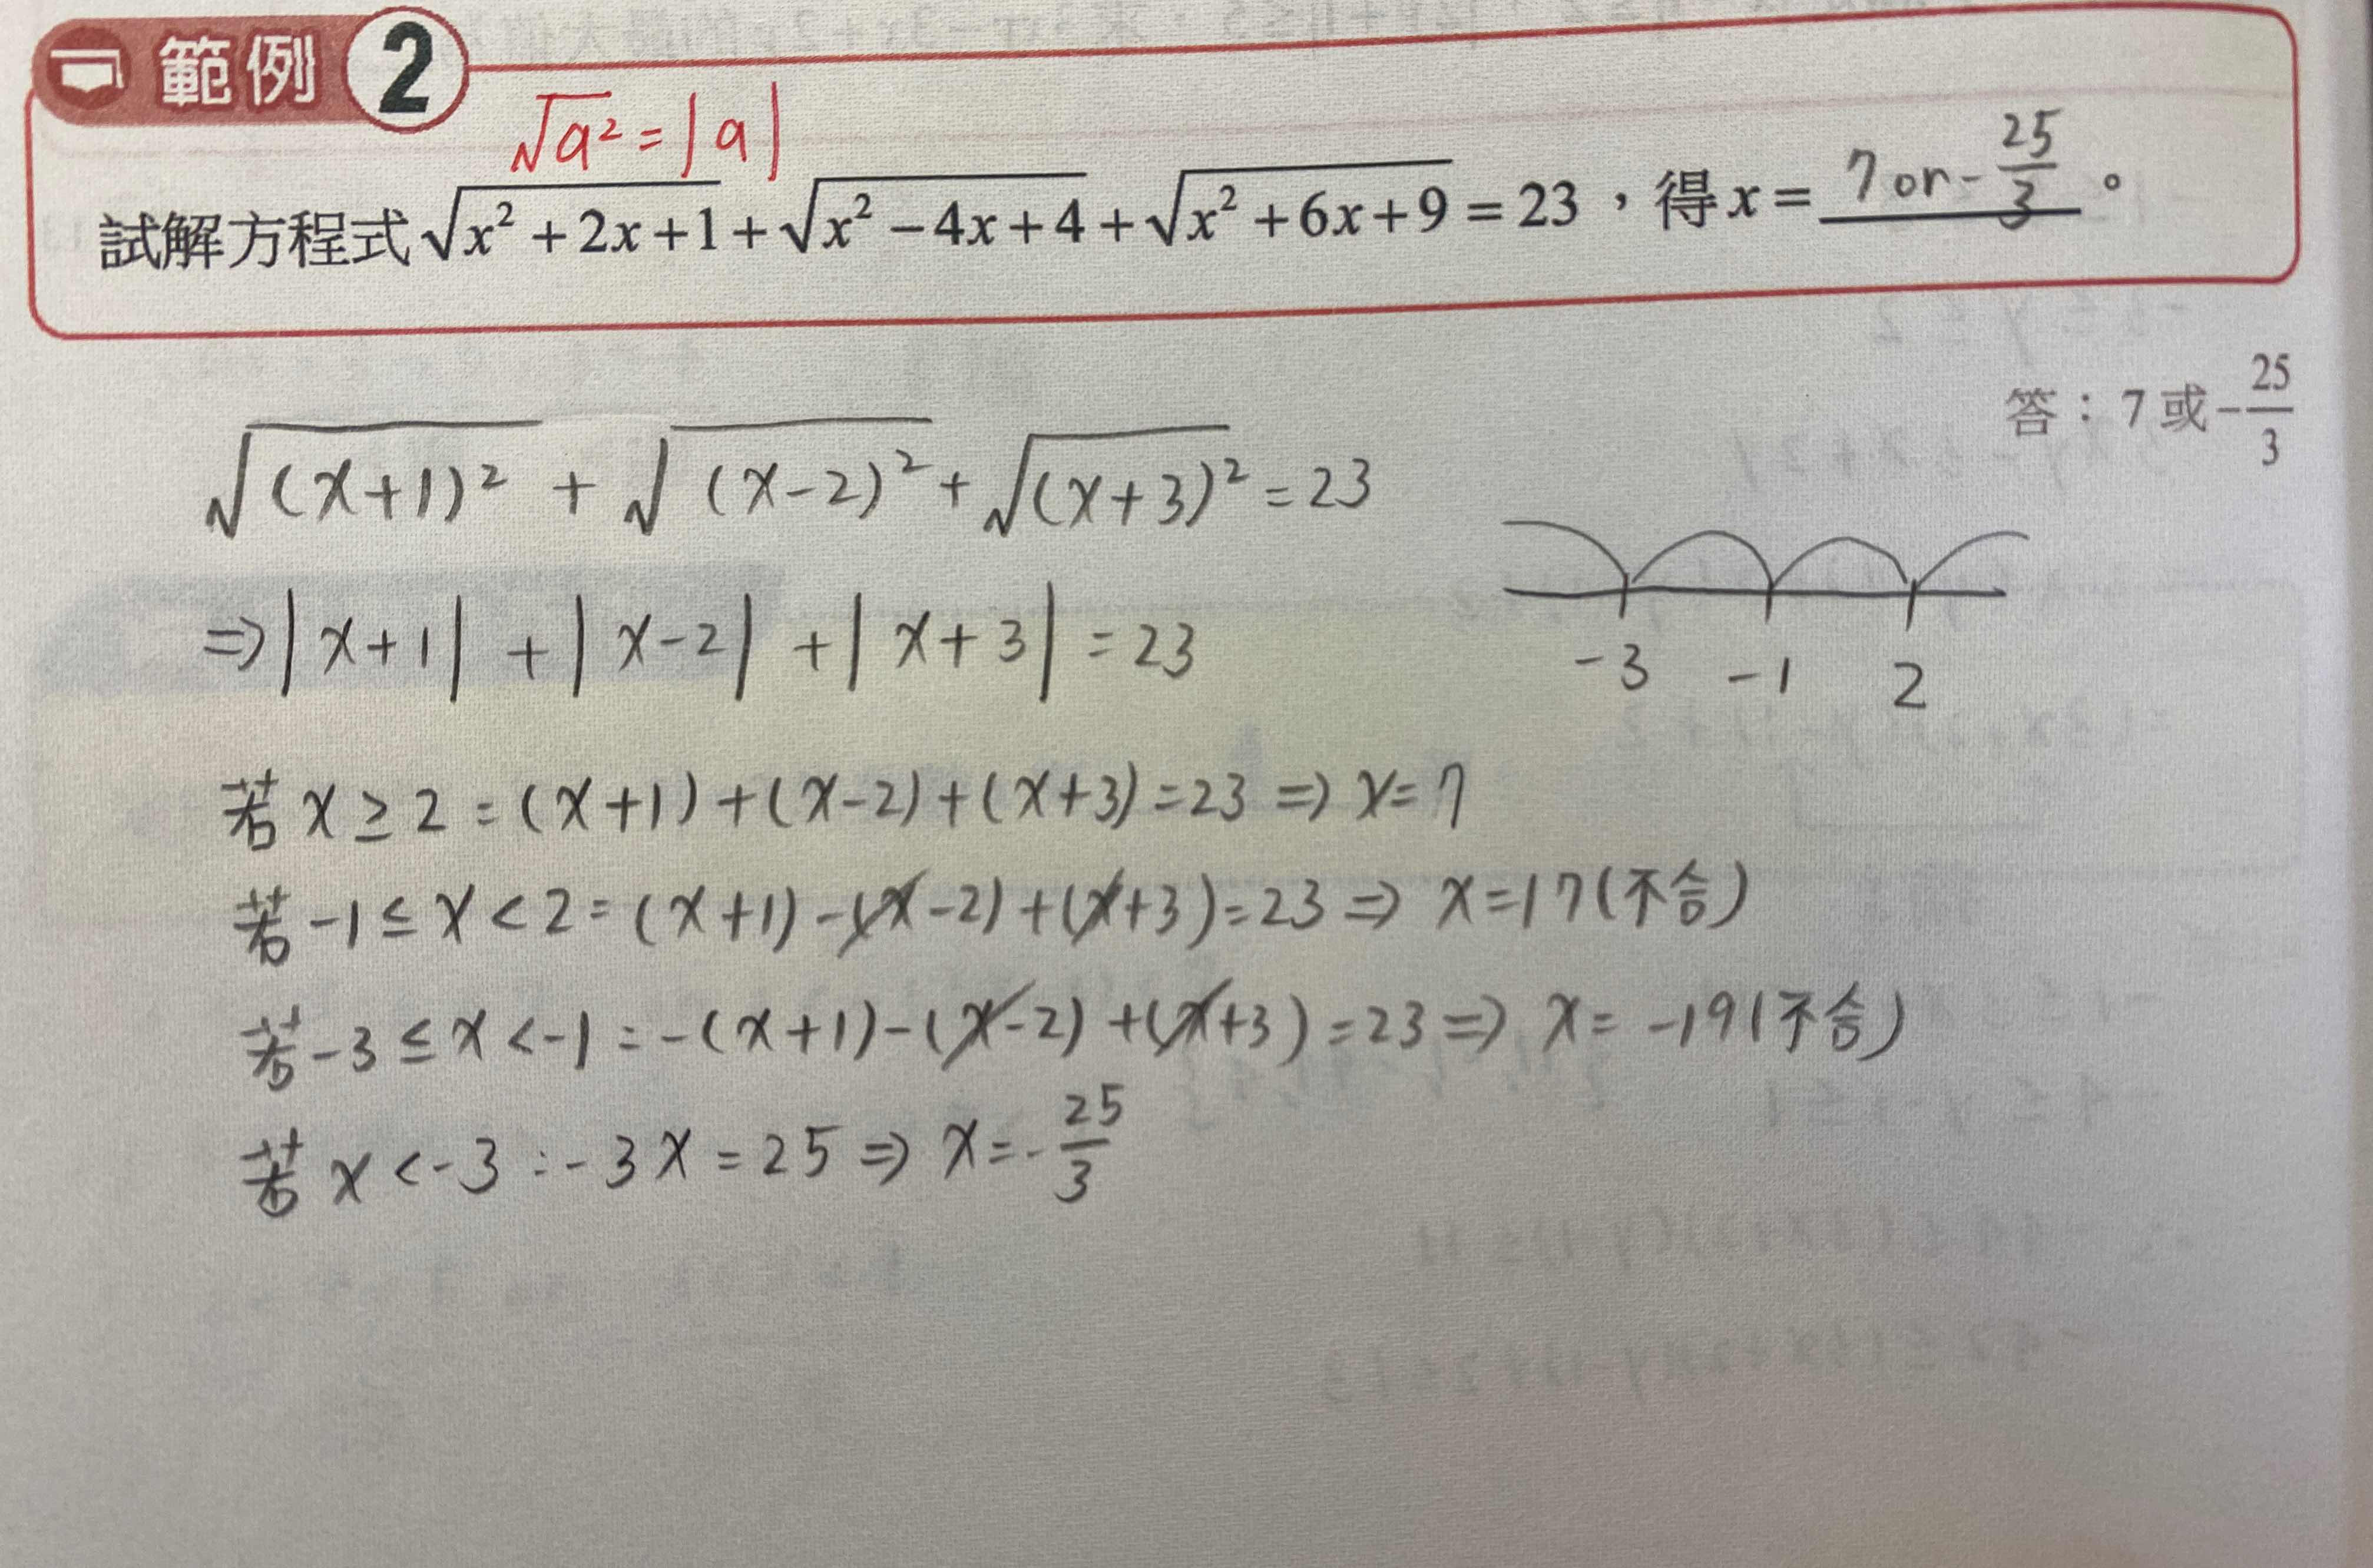 範例 2
√a² = |a|
試解方程式 √(x²+2x+1) + √(x²−4x+4) + √(x²+6x+9) = 23，得 x = 7 or -25/3 。
答：7 或 -25/3
√(x+1)² + √(x-2)² + √(x+3)² = 23
⇒ |x+1| + |x-2| + |x+3| = 23
-3 -1 2
若 x ≥ 2 : (x+1)+(x-2)+(x+3)=23 ⇒ x=7
若 -1 ≤ x < 2 : (x+1)-(x-2)+(x+3)=23 ⇒ x=17(不合)
若 -3 ≤ x < -1 : -(x+1)-(x-2)+(x+3)=23 ⇒ x= -19(不合)
若 x < -3 : -3x = 25 ⇒ x = -25/3